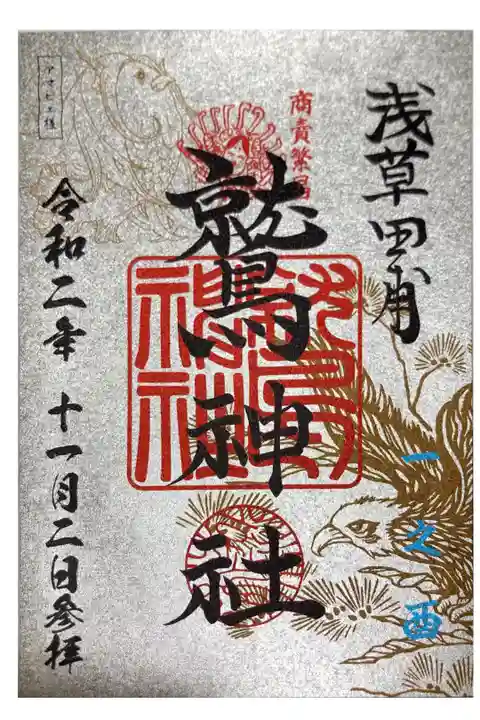 商賣繁昌
浅草田甫
鷲神社
一之酉
令和二年 十一月二日参拝